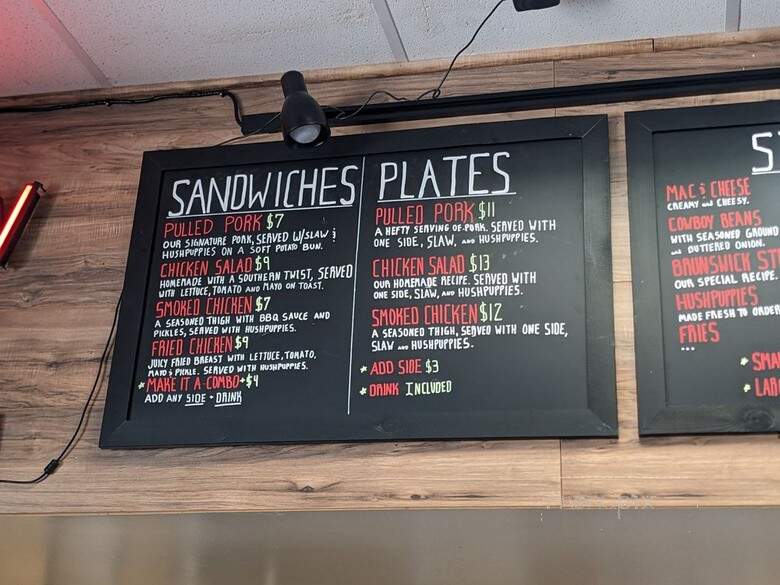 SANDWICHES
PULLED PORK $7
OUR SIGNATURE PORK, SERVED W/SLAW &
HUSHPUPPIES ON A SOFT POTATO BUN.
CHICKEN SALAD $9
HOMEMADE WITH A SOUTHERN TWIST, SERVED
WITH LETTUCE, TOMATO AND MAYO ON TOAST.
SMOKED CHICKEN $7
A SEASONED THIGH WITH BBQ SAUCE AND
PICKLES, SERVED WITH HUSHPUPPIES.
FRIED CHICKEN $9
JUICY FRIED BREAST WITH LETTUCE, TOMATO,
MAYO & PICKLE. SERVED WITH HUSHPUPPIES.
* MAKE IT A COMBO +$4
ADD ANY SIDE + DRINK
PLATES
PULLED PORK $11
A HEFTY SERVING OF PORK. SERVED WITH
ONE SIDE, SLAW, AND HUSHPUPPIES.
CHICKEN SALAD $13
OUR HOMEMADE RECIPE. SERVED WITH
ONE SIDE, SLAW, AND HUSHPUPPIES.
SMOKED CHICKEN $12
A SEASONED THIGH, SERVED WITH ONE SIDE,
SLAW AND HUSHPUPPIES.
* ADD SIDE $3
* DRINK INCLUDED
S
MAC & CHEESE
CREAMY and CHEESY.
COWBOY BEANS
WITH SEASONED GROUND
and BUTTERED ONION.
BRUNSWICK ST
OUR SPECIAL RECIPE.
HUSHPUPPIES
MADE FRESH TO ORDER
FRIES
...
* SMA
* LAR